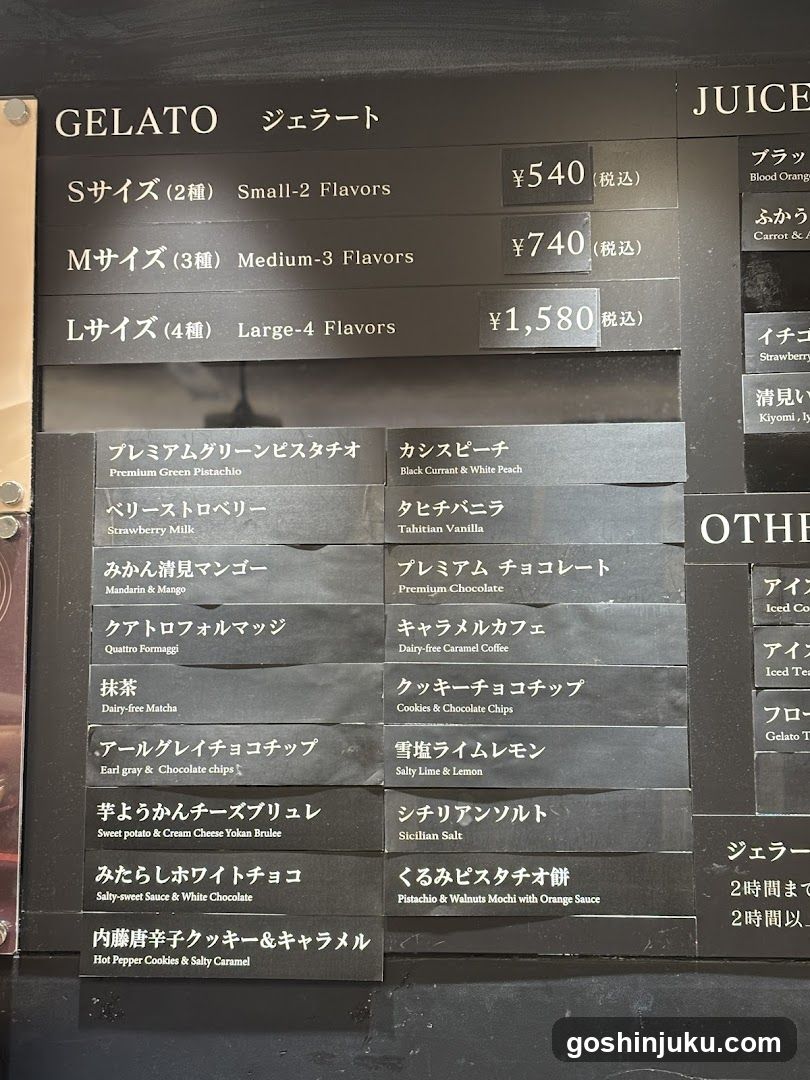 GELATO ジェラート
Sサイズ(2種) Small-2 Flavors ¥540(税込)
Mサイズ(3種) Medium-3 Flavors ¥740(税込)
Lサイズ(4種) Large-4 Flavors ¥1,580(税込)
プレミアムグリーンピスタチオ
Premium Green Pistachio
ベリーストロベリー
Strawberry Milk
みかん清見マンゴー
Mandarin & Mango
クアトロフォルマッジ
Quattro Formaggi
抹茶
Dairy-free Matcha
アールグレイチョコチップ
Earl gray & Chocolate chips
芋ようかんチーズブリュレ
Sweet potato & Cream Cheese Yokan Brulee
みたらしホワイトチョコ
Salty-sweet Sauce & White Chocolate
内藤唐辛子クッキー&キャラメル
Hot Pepper Cookies & Salty Caramel
カシスピーチ
Black Currant & White Peach
タヒチバニラ
Tahitian Vanilla
プレミアム チョコレート
Premium Chocolate
キャラメルカフェ
Dairy-free Caramel Coffee
クッキーチョコチップ
Cookies & Chocolate Chips
雪塩ライムレモン
Salty Lime & Lemon
シチリアンソルト
Sicilian Salt
くるみピスタチオ餅
Pistachio & Walnuts Mochi with Orange Sauce
JUICE
ブラッ
Blood Orang
ふかう
Carrot & A
イチゴ
Strawberry
清見い
Kiyomi , Iy
OTHE
アイス
Iced Co
アイス
Iced Tea
フロー
Gelato T
ジェラー
2時間まで
2時間以上
goshinjuku.com